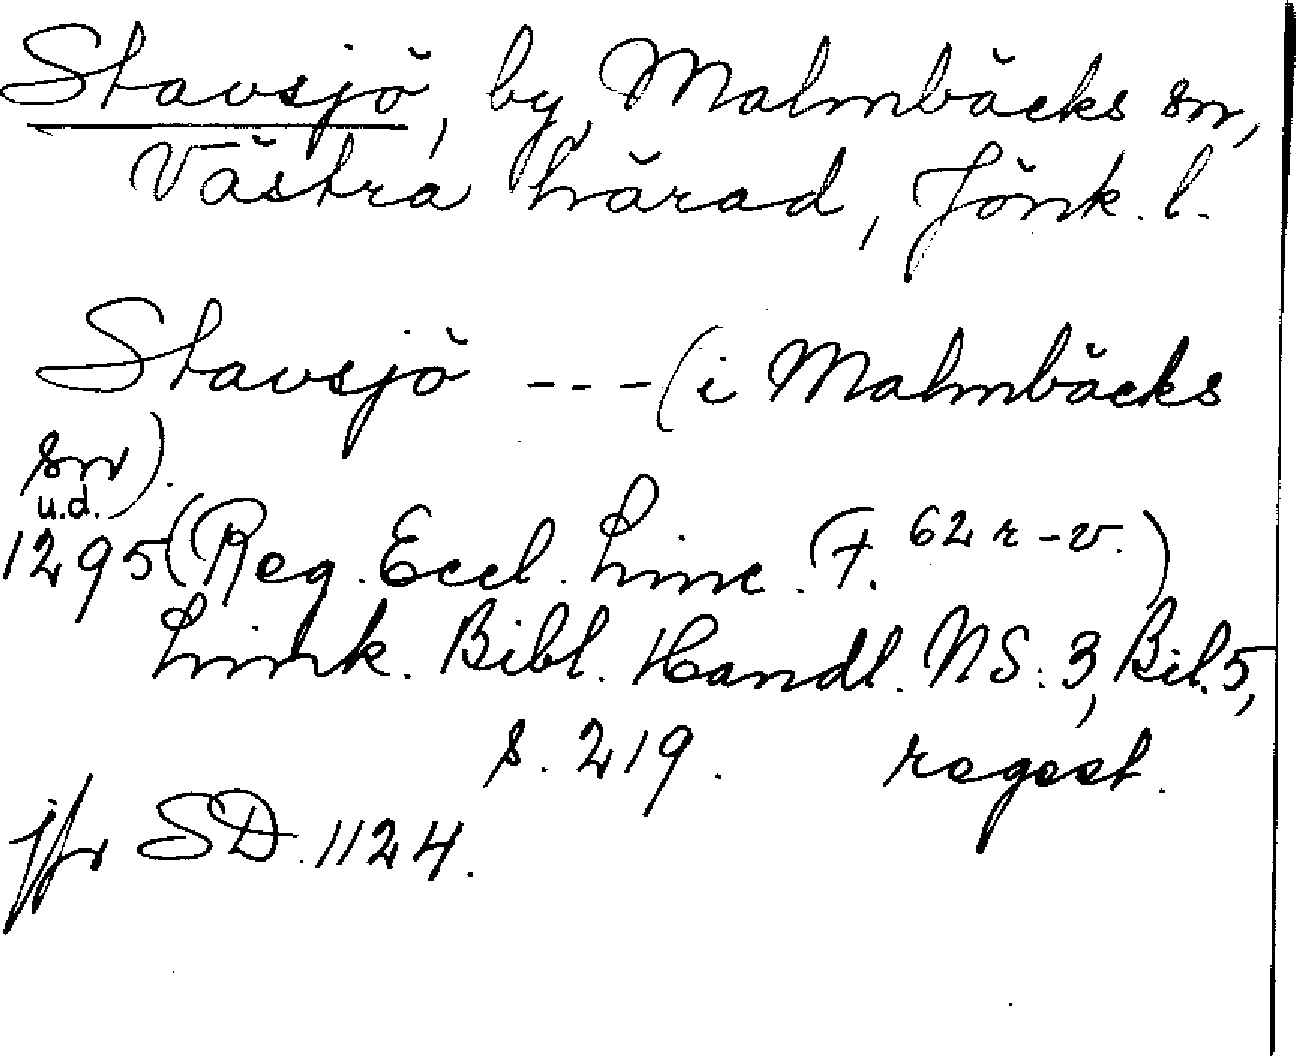 Stavsjö, by, Malmbäcks sn,
Västra härad, Jönk. l.
Stavsjö --- (i Malmbäcks
sn).
u.d.
1295 (Reg. Eccl. Linc. F. 62 r-v.)
Link. Bibl. Handl. NS: 3, Bil. 5,
s. 219. regest.
jfr SD. 1124.